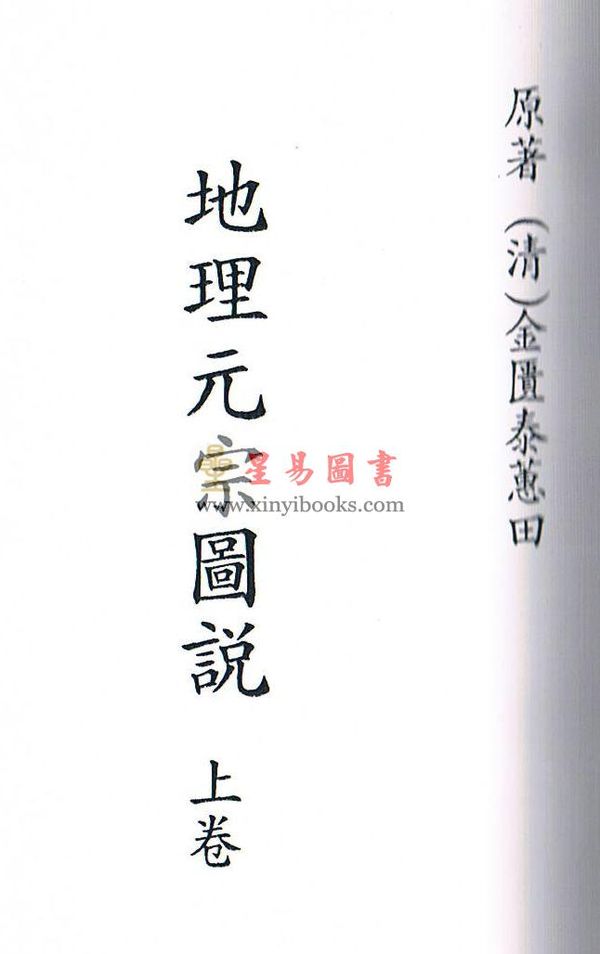 原著 (清)金匱泰蕙田
地理元宗圖説 上卷
星易圖書
www.xinyibooks.com